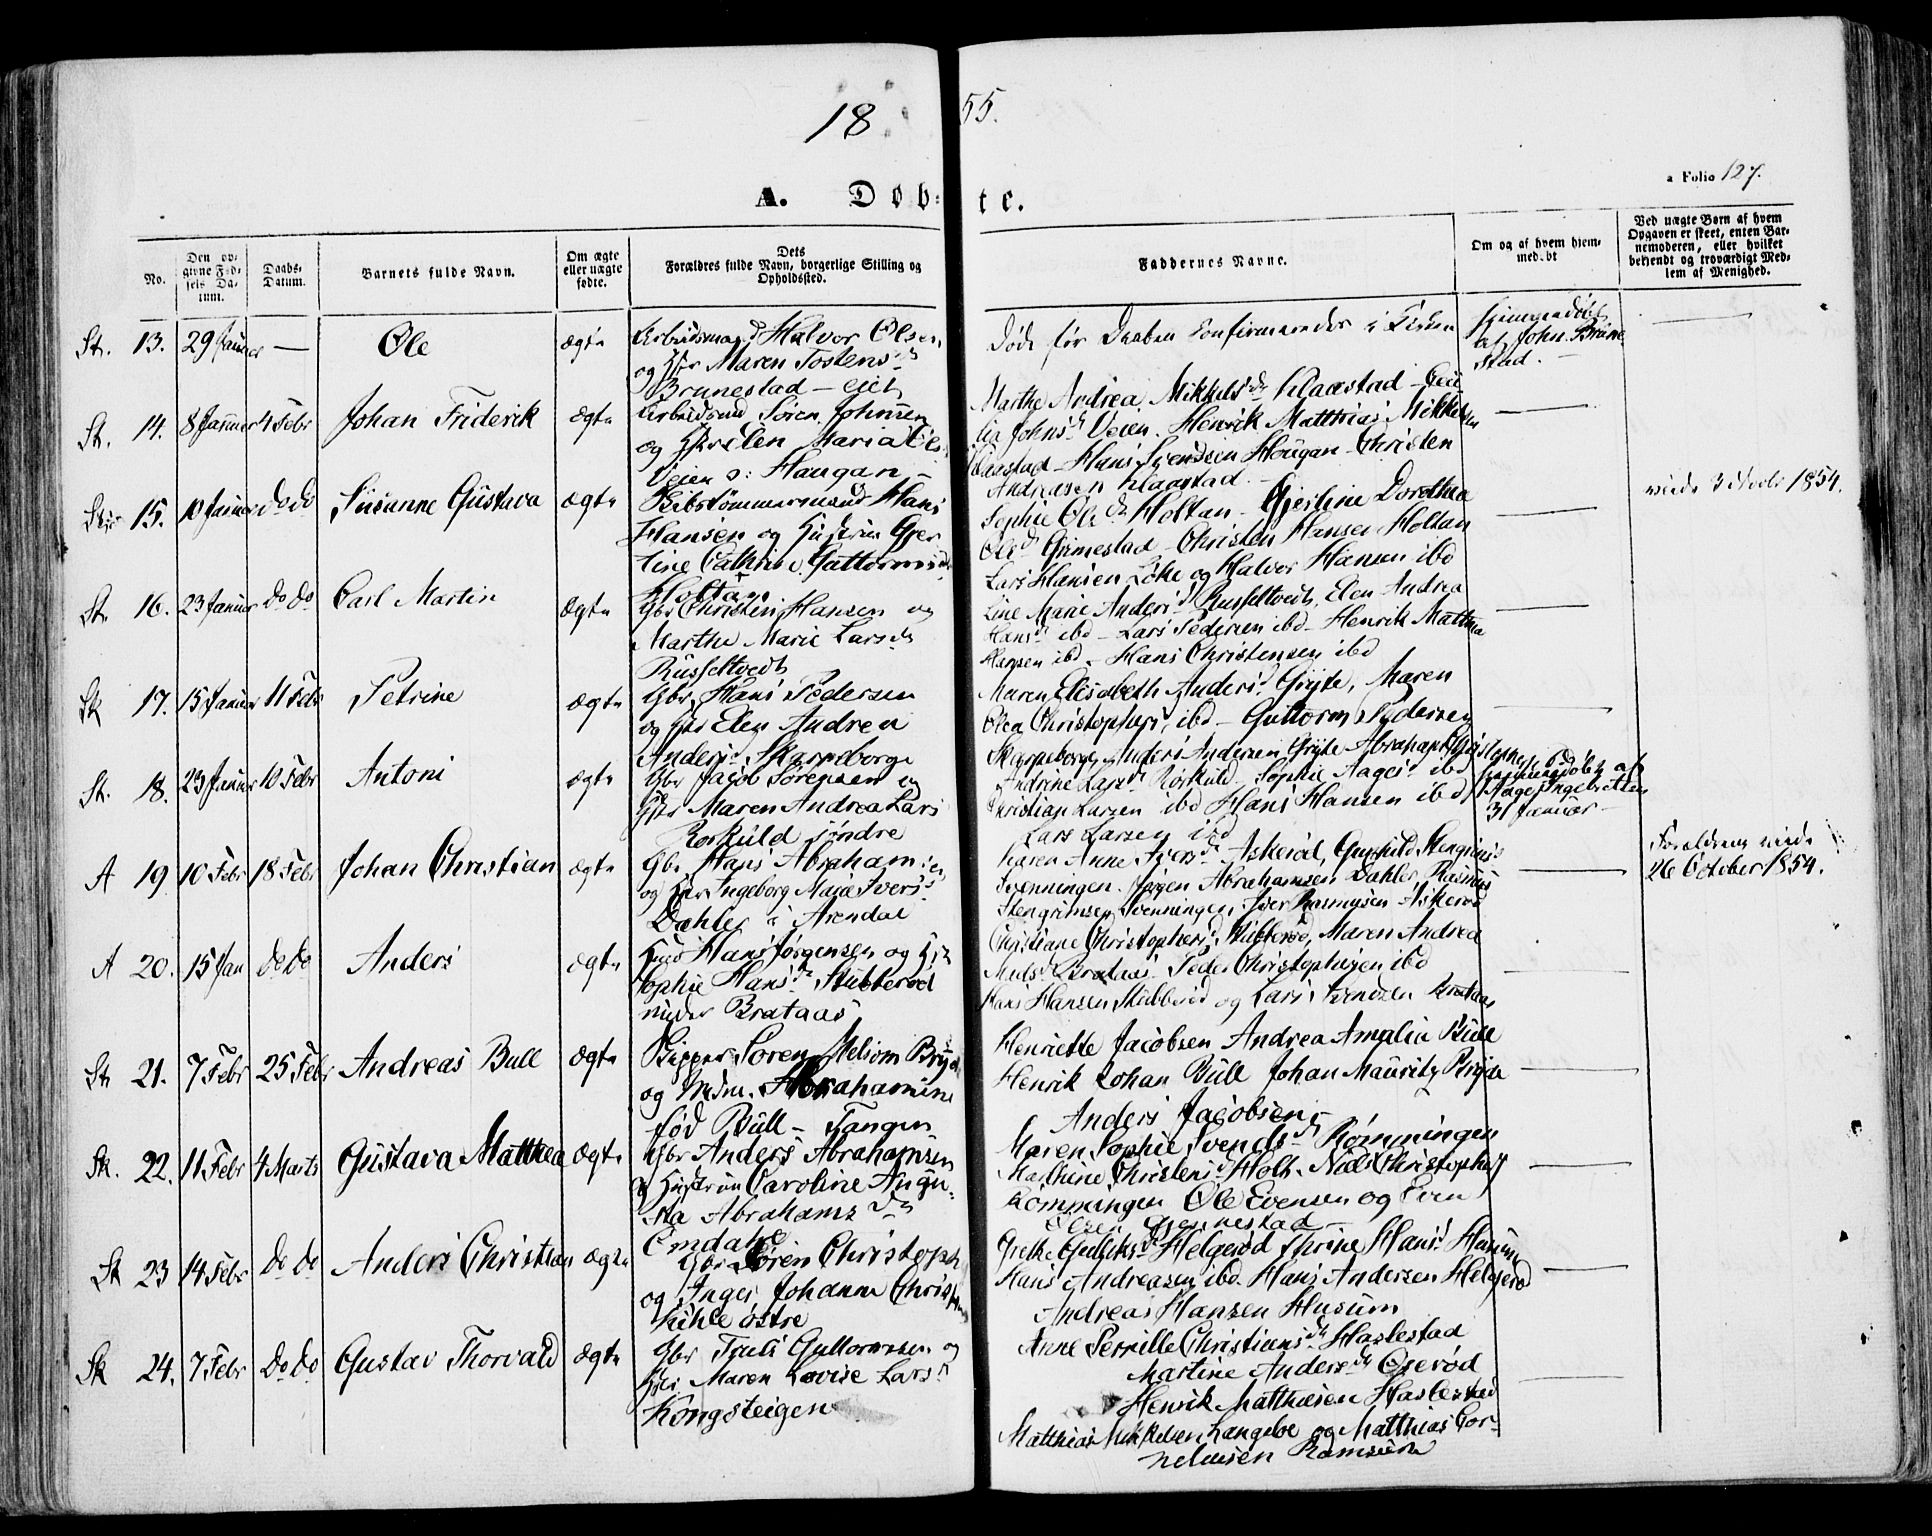 18 55.
a Folio 127.
A. Døb- te.
No.
Den opgivne Fødsels Datum.
Daabs-Datum.
Barnets fulde Navn.
Om ægte eller uægte fødte.
Dets Forældres fulde Navn, borgerlige Stilling og Opholdssted.
Faddernes Navne.
Om og af hvem hjemmedøbt
Ved uægte Børn af hvem Opgaven er skeet, enten Barnemoderen, eller hvilket bekjendt og troværdigt Medlem af Menighed.
St. 13. 29 Januar — Ole ægte
Arbeidsmand Halvor Olsen
og Hst Maren Tostensd
Brunestad — eiet
Døde før Daaben Confirmeredes i Kirken
Hjemmedøbt
af John Brune
stad. —
St. 14. 8 Januar 4 Febr Johan Friderik ægte
Søren Johnsen
og Hst Elen Maria
Veien Haugan —
Marthe Andrea Mikkelsd Klaastad —
Johnsd Veien. Henrik Matthias Mikkelsen
Klaastad — Hans Svendsen Hougan — Christen
Andreasen Klaastad. —
15. 10 Januar do do Susanne Gustava ægte
Bibstømmermand Hans
Hansen og Hustrue Gjer
tine Cathrine Guttormsd
Holtan
Sophie Olsd Holtan — Gjertine Dorothea
Olsd Grimestad — Christen Hansen Holtan
Lars Hansen Løke og Halvor Hansen ibd
3 1854.
St. 16. 23 Januar do do Carl Martin ægte
Gbr Christen Hansen og
Marthe Marie Larsd
Russeltvedt
Line Marie Andersd Russeltvedt, Elen Andrea
Hansd ibd — Lars Pedersen ibd — Henrik Mattias
Hansen ibd — Hans Christensen ibd
Sk 17. 15 Januar 11 Febr Petrine ægte
Gbr. Hans Pedersen
og Hst Elen Andrea
Andersd Skarpeborge
Maren Elisabeth Andersd Gryte, Maren
Olea Christophersd ibd — Guttorm Pedersen
Skarpeborge, Anders Andersen Gryte Abraham
St. 18. 23 Januar 10 Febr Antoni ægte
Gbr Jacob Sørensen og
Hst Maren Andrea Larsd
Rorkuld søndre
Andrine Larsd Rorkuld — Sophie Aagesd ibd
Christian Larsen ibd Hans Hansen ibd
Lars Larsen ibd
hjemmedøbt af
Aage Ingebretsen
31 Januar —
A 19 10 Febr 18 Febr Johan Christian ægte
Gbr Hans Abrahamsen
og Hst Ingeborg Marie Iversd
Dahler i Arendal
Karen Anne Iversd Askerød, Gunhild Stengrimsd
Svenningen. Jørgen Abrahamsen Dahler Rasmus
Stengrimsen Svenningen, Iver Rasmusen Askerød
Forældrene
26 October 1854.
A 20. 15 Jan do do Anders ægte
Hans Jørgensen og Hst
Sophie Hansd Stubberød
under Brataas
Christiane Christophersd Stubberød, Maren Andrea
Nilsd Brataas. Peder Christophersen ibd
Hans Hansen Stubberød og Lars Svendsen Brataas
St 21. 7 Febr 25 Febr Andreas Bull ægte
Skipper Søren Melsom Bryde
og Mdme. Abrahamine
fød Bull — Tangen
Henriette Jacobsen Andrea Amalia Bull
Henrik Johan Bull Johan Mauritz Bryde
Anders Jacobsen
Sk. 22. 11 Febr 4 Marts Gustava Matthea ægte
Gbr Anders Abrahamsen
og Hustrue Caroline Augu-
sta Abrahamsd
Emdahl
Maren Sophie Svendsd Rømmingen
Mathine Christensd Holt. Niels Christophersen
Rømmingen Ole Evensen og Even
Olsen Gjennestad
Sk 23 14 Febr do do Anders Christian ægte
Gbr Søren Christophersen
og Inger Johanne Christophersd
Kihle østre
Grethe Gulliksd Helgerød Thrine Hansd Husum
Hans Andreasen ibd. Hans Andersen Helgerød
Andreas Hansen Husum
Sk 24. 7 Febr do do Gustav Thorvald ægte
Gbr Truls Guttormsen og
Hst Maren Lovise Larsd
Kongsteigen
Anne Pernille Christiansd Haslestad
Martine Andersd Oserød
Henrik Matthiesen Haslestad
Matthias Mikkelsen Langebe og Matthias Cor-
neliusen Ramsum